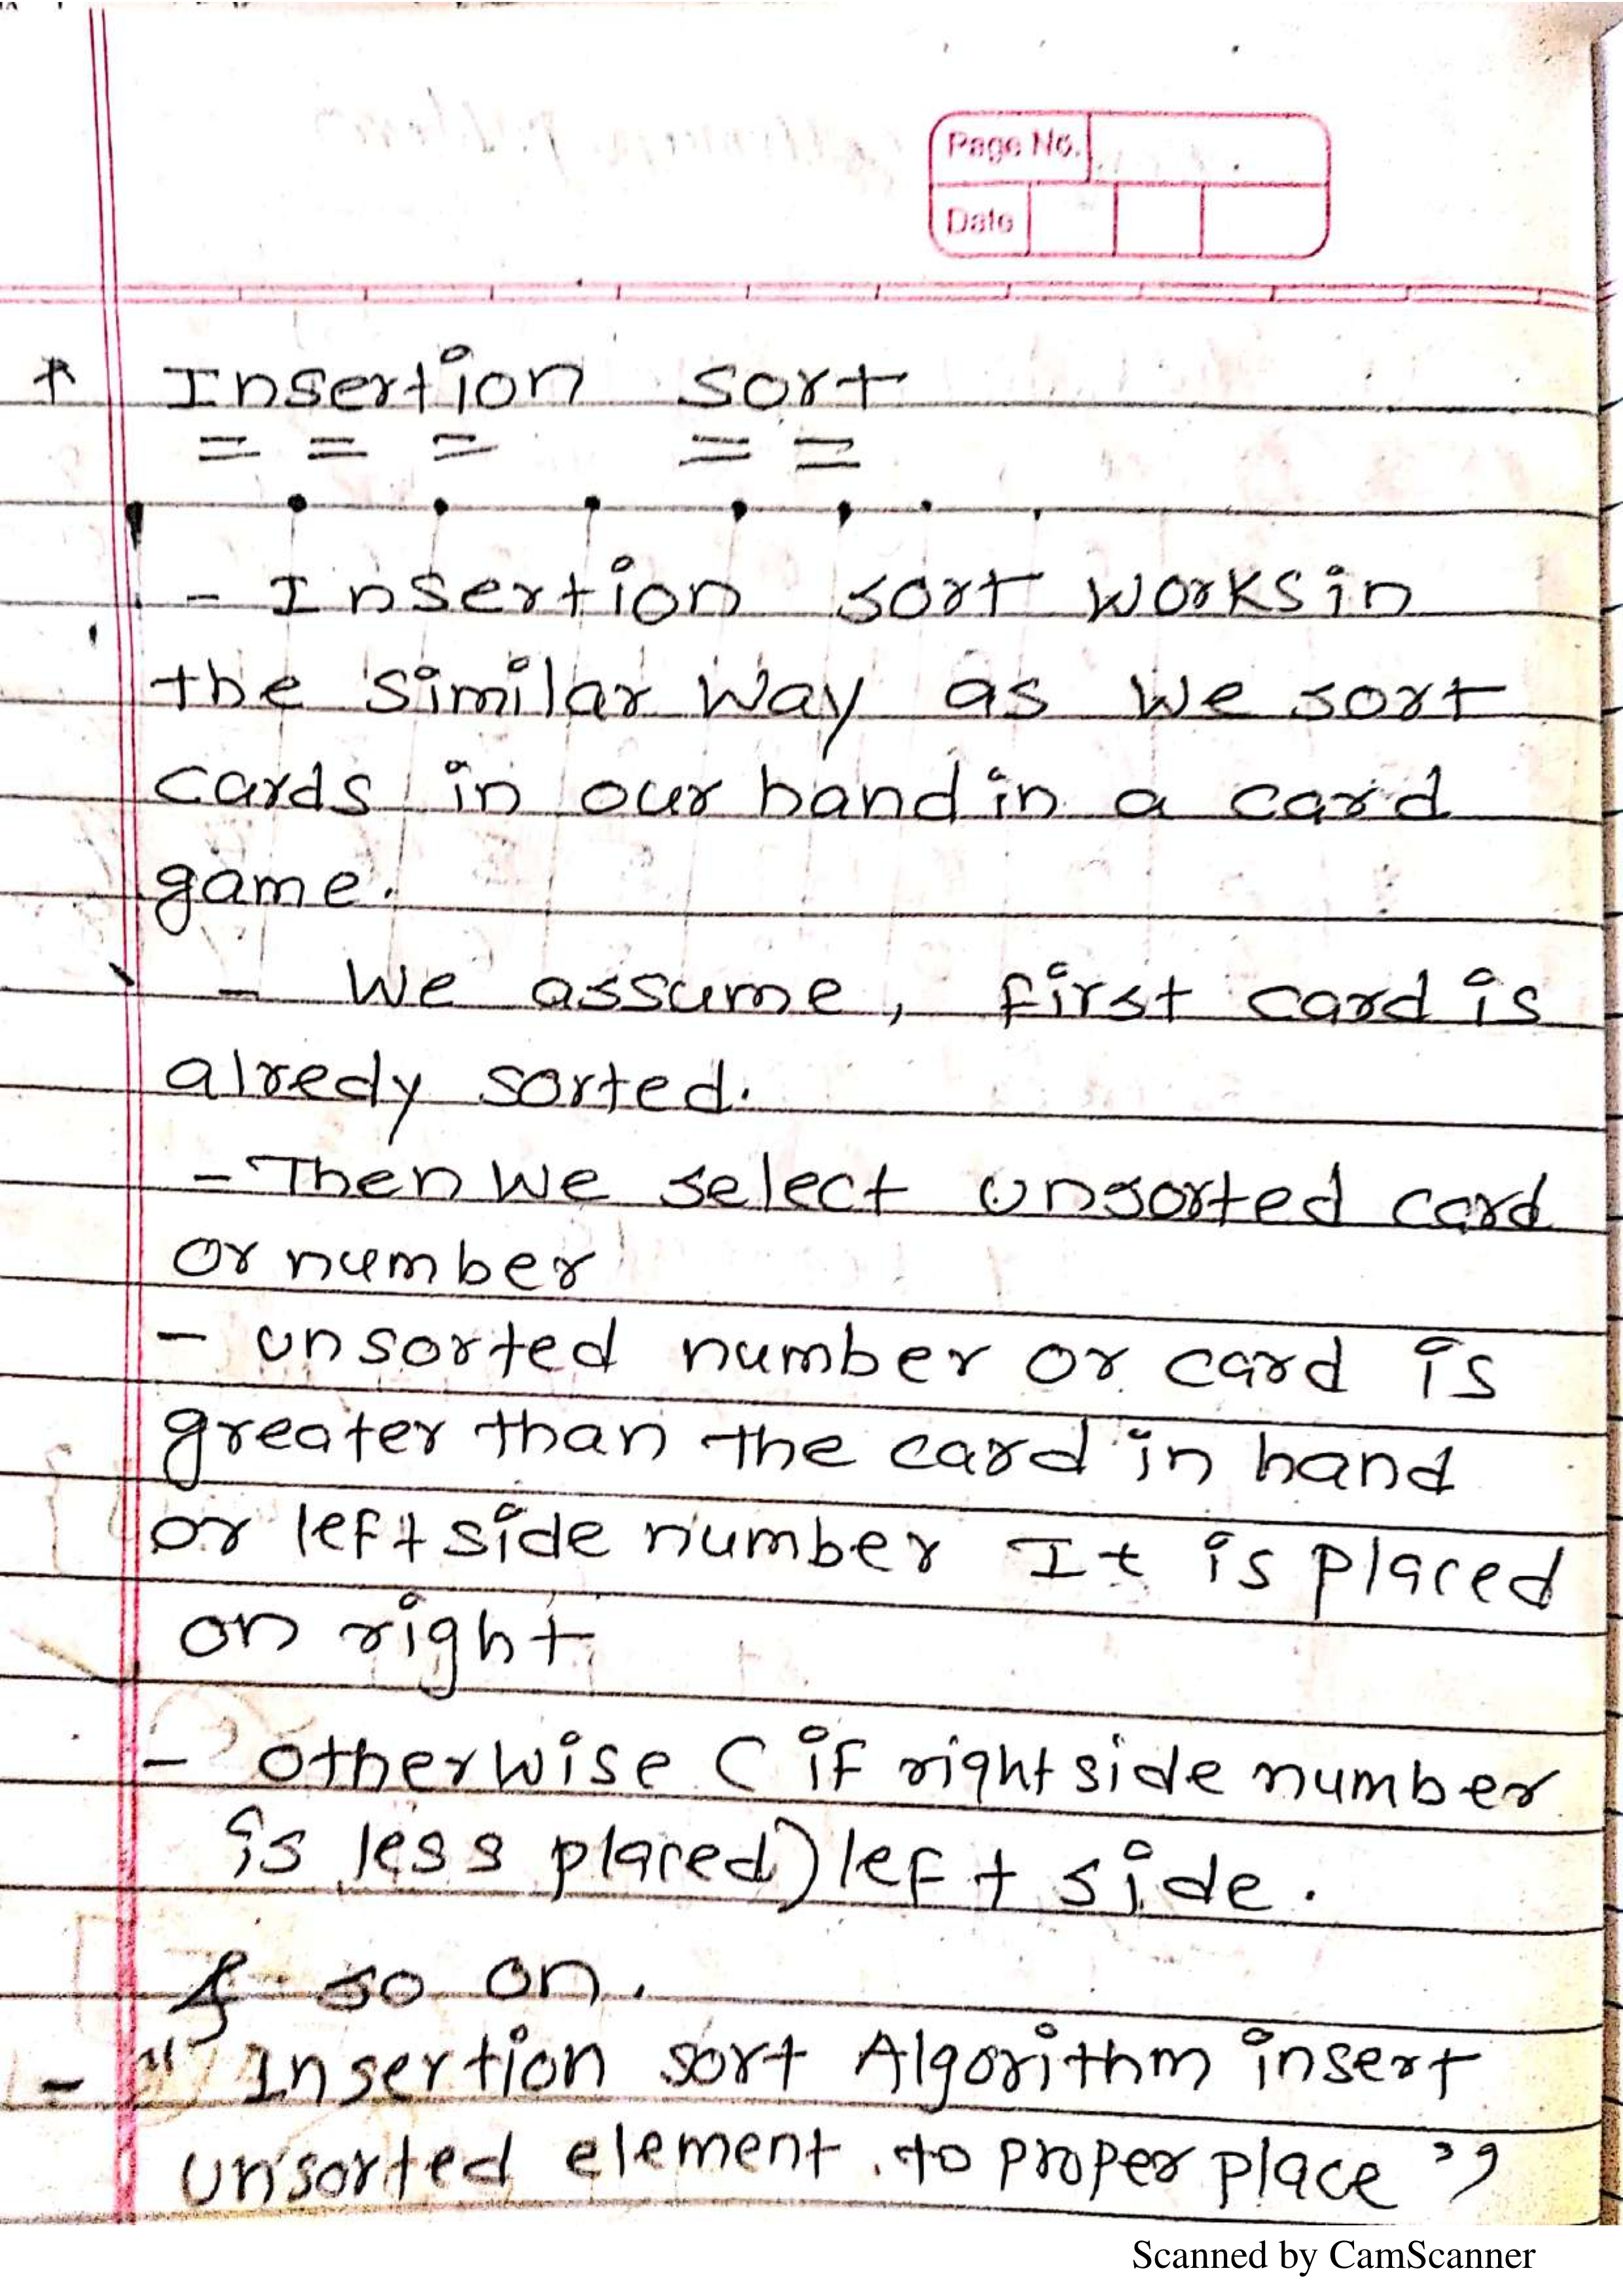 Page No.
Date
* Insertion sort
- Insertion sort works in
the similar way as we sort
cards in our hand in a card
game.
- We assume, first card is
alredy sorted.
- Then we select unsorted card
or number
- unsorted number or card is
greater than the card in hand
or left side number It is placed
on right
- otherwise ( if right side number
is less placed) left side.
& so on.
- " Insertion sort Algorithm insert
unsorted element to proper place "
Scanned by CamScanner